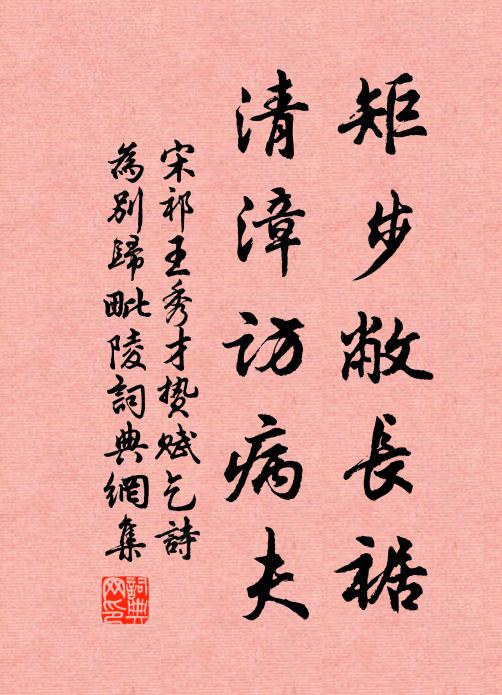 矩步敝長裾
清漳訪病夫
宋祁王秀才贄賦乞詩
為別歸毗陵詞典網集
詞典
网印